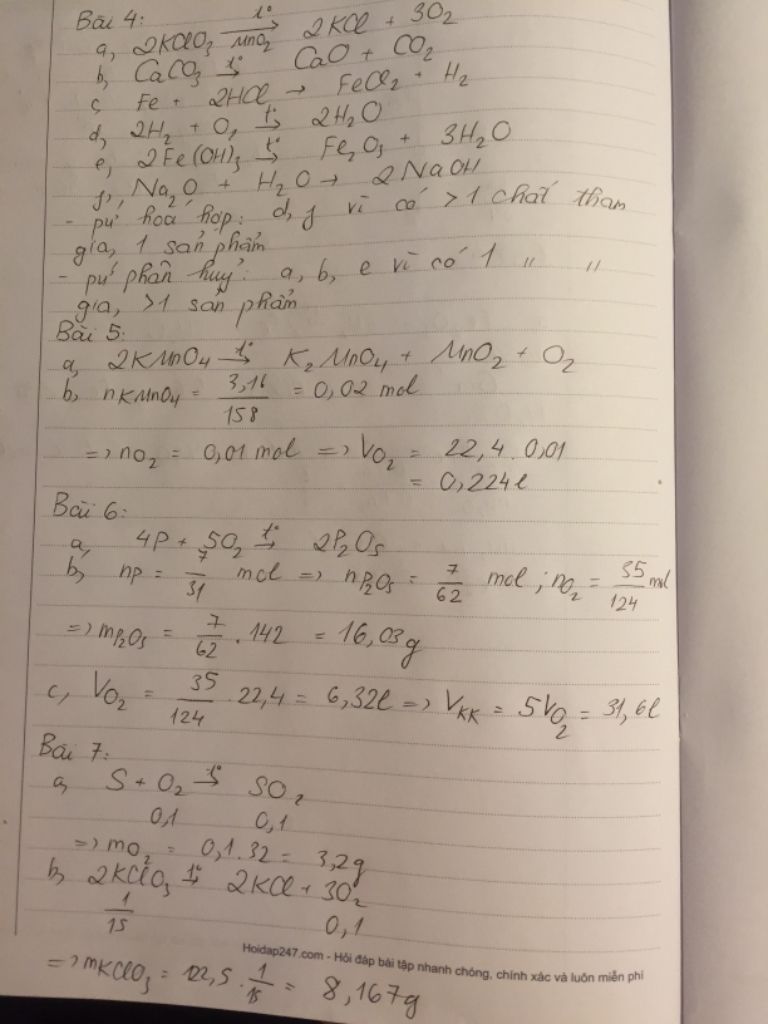 Bài 4:
a, 2KClO₃ —t°/MnO₂→ 2KCl + 3O₂
b, CaCO₃ —t°→ CaO + CO₂
c, Fe + 2HCl → FeCl₂ + H₂
d, 2H₂ + O₂ —t°→ 2H₂O
e, 2Fe(OH)₃ —t°→ Fe₂O₃ + 3H₂O
f, Na₂O + H₂O → 2NaOH
- pứ hoá hợp: d, f vì có >1 chất tham
gia, 1 sản phẩm
- pứ phân huỷ: a, b, e vì có 1 〃 〃
gia, >1 sản phẩm
Bài 5:
a, 2KMnO₄ —t°→ K₂MnO₄ + MnO₂ + O₂
b, nKMnO₄ = 3,16/158 = 0,02 mol
=> nO₂ = 0,01 mol => VO₂ = 22,4.0,01
= 0,224l
Bài 6:
a, 4P + 5O₂ —t°→ 2P₂O₅
b, nP = 7/31 mol => nP₂O₅ = 7/62 mol; nO₂ = 35/124 mol
=> mP₂O₅ = 7/62 . 142 = 16,03g
c, VO₂ = 35/124 . 22,4 = 6,32l => VKK = 5VO₂ = 31,6l
Bài 7:
a, S + O₂ —t°→ SO₂
0,1 0,1
=> mO₂ = 0,1.32 = 3,2g
b, 2KClO₃ —t°→ 2KCl + 3O₂
1/15 0,1
Hoidap247.com - Hỏi đáp bài tập nhanh chóng, chính xác và luôn miễn phí
=> mKClO₃ = 122,5 . 1/15 = 8,167g